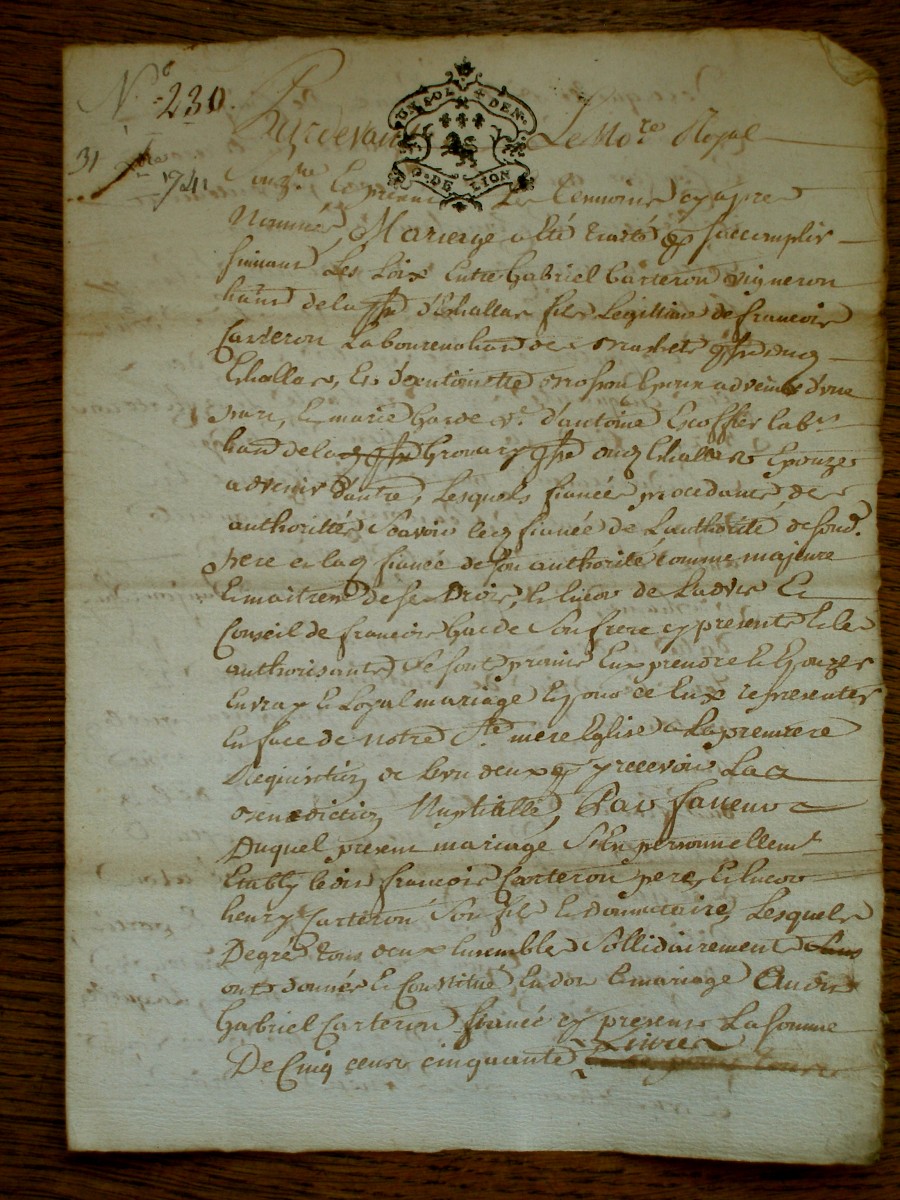 N° 230.
31
1741
UN SOL 4 DEN.
G. DE LION
Pardevant Le No.re Royal
soub.né Et présence Des temoins cy apres
Nommés, Mariage a Eté traité et saccomplir
suivant Les Loix Entre Gabriel Carteron vigneron
hant de la psse d'Echallas fils Legittime de francois
Carteron Laboureur hant de psse dud
Echallas, Et d'antoinette Epoux advenir d'une
part, Et marie Garde v.e d'antoine Escoffier lab.r
hant de lad psse psse dud Echallas Epouze
advenir d'autre, Lesquels fiancés procedants de
authorittés Scavoir led fiancé de L'authorité de sond.
pere et lad fiancée de son authorité comme majeure
Et maitresse de ses Droits, Et Encor de L'advis Et
Conseil de francois Garde Son frere cy present Et le
authorisants Se sont promis Eux prendre Et Epouzer
En vray Et Loyal mariage Et pour ce Eux representer
En face de notre Ste mere Eglise a La premiere
Requisition de l'un deux et y recevoir La
Benediction Nuptialle, Par faveur
Duquel present mariage S'est personnellemt
Etably ledit francois Carteron pere, Et Encor
henry Carteron Son fils Et Donnataire, Lesquels
De gré tous deux Ensemble Sollidairement
ont donnés Et Constitué En dot Et mariage Audit
Gabriel Carteron fiancé cy present La somme
De Cinq cents cinquante Livres